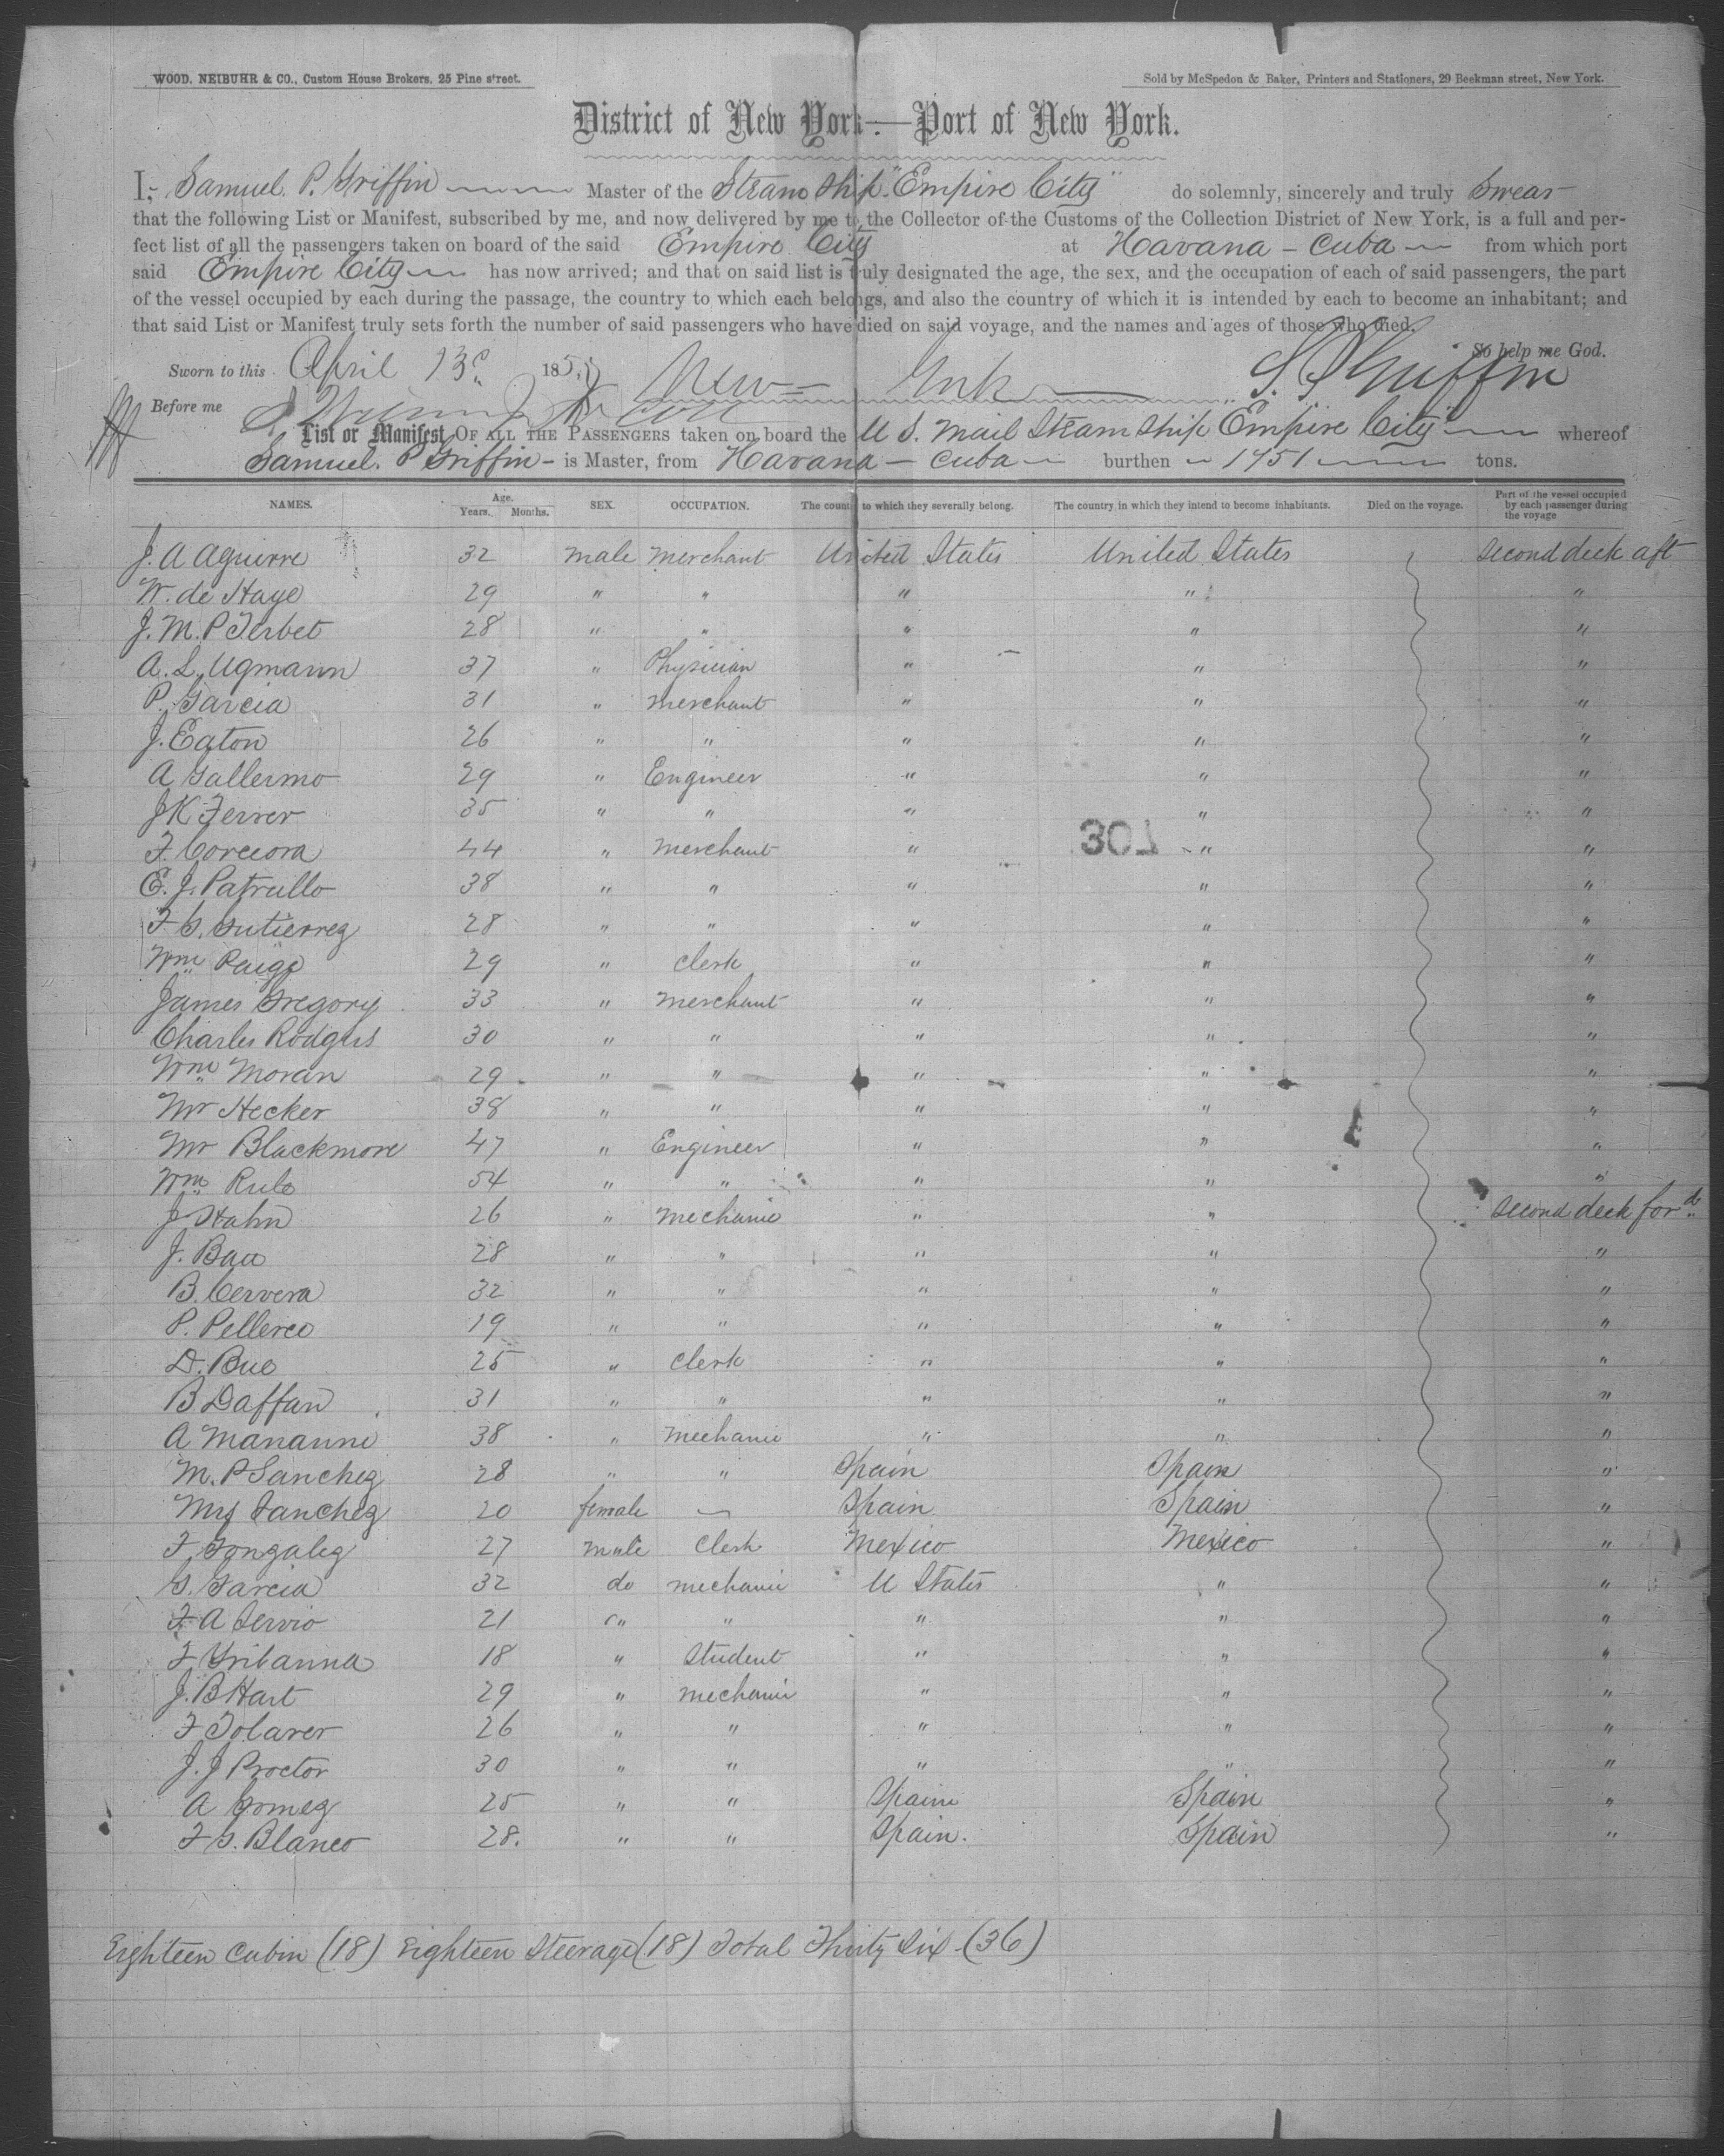 WOOD, NEIBUHR & CO., Custom House Brokers, 25 Pine street.
Sold by McSpedon & Baker, Printers and Stationers, 29 Beekman street, New York.
District of New York—Port of New York.
I, Samuel. P. Griffin Master of the Steam Ship "Empire City" do solemnly, sincerely and truly swear
that the following List or Manifest, subscribed by me, and now delivered by me to the Collector of the Customs of the Collection District of New York, is a full and per-
fect list of all the passengers taken on board of the said Empire City at Havana - Cuba from which port
said Empire City has now arrived; and that on said list is truly designated the age, the sex, and the occupation of each of said passengers, the part
of the vessel occupied by each during the passage, the country to which each belongs, and also the country of which it is intended by each to become an inhabitant; and
that said List or Manifest truly sets forth the number of said passengers who have died on said voyage, and the names and ages of those who died.
So help me God.
Sworn to this April 13 185 New York S. P. Griffin
Before me
List or Manifest OF ALL THE PASSENGERS taken on board the U S. Mail Steam Ship Empire City whereof
Samuel. P Griffin - is Master, from Havana - Cuba burthen 1751 tons.
NAMES. Age. Years. Months. SEX. OCCUPATION. The country to which they severally belong. The country in which they intend to become inhabitants. Died on the voyage. Part of the vessel occupied by each passenger during the voyage
J. A Aguirre 32 male merchant United States United States second deck aft
W. de Haye 29 " " " " "
J. M. P Terbet 28 " " " " "
A. L. Ugmann 37 " Physician " " "
P. Garcia 31 " merchant " " "
J. Eaton 26 " " " " "
A Gallermo 29 " Engineer " " "
J K Ferrer 35 " " " " "
307
F. 44 " merchant " " "
E. J. Patrullo 38 " " " " "
F G. Gutierrez 28 " " " " "
Wm Paige 29 " clerk " " "
James Gregory 33 " merchant " " "
Charles Rodgers 30 " " " " "
Wm Moran 29 " " " " "
Mr Hecker 38 " " " " "
Mr Blackmore 47 " Engineer " " "
Wm Rulo 54 " " " " "
J Hahn 26 " mechanic " " second deck for d
J. Baa 28 " " " " "
B. Cervera 32 " " " " "
P. Pellerco 19 " " " " "
D. Bue 25 " clerk " " "
B Daffan 31 " " " " "
A Mananni 38 " mechanic " " "
M. P Sanchez 28 " " Spain Spain "
Mrs Sanchez 20 female — Spain Spain "
F. Gonzalez 27 male clerk Mexico Mexico "
G. Garcia 32 do mechanic U States " "
F A Servio 21 " " " " "
F Yribanna 18 " student " " "
J. B Hart 29 " mechanic " " "
F Tolarer 26 " " " " "
J. J Proctor 30 " " " " "
A Gomez 25 " " Spain Spain "
F G. Blanco 28. " " Spain. Spain "
Eighteen Cabin (18) Eighteen Steerage (18) Total Thirty Six - (36)